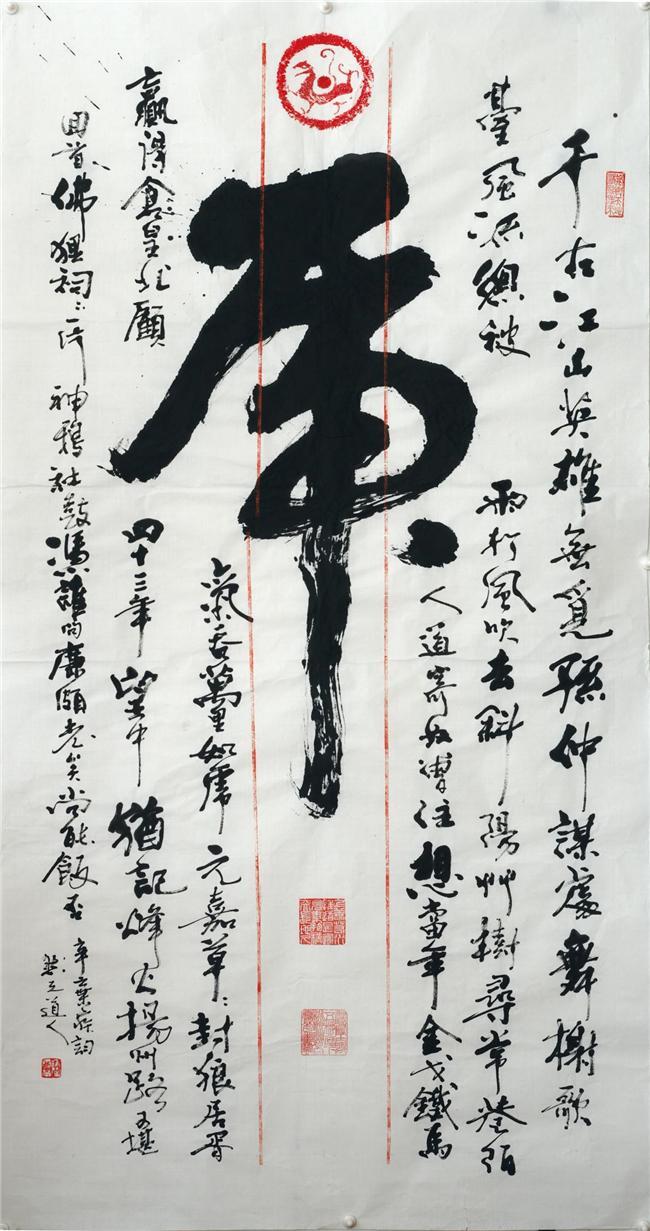 千古江山英雄無覓孫仲謀處舞榭歌
臺風流總被
雨打風吹去斜陽艸樹尋常巷陌
人道寄奴曾住想當年金戈鐵馬
虎
氣吞萬里如虎元嘉草草封狼居胥
贏得倉皇北顧
四十三年望中猶記烽火揚州路可堪
回首佛狸祠下一片神鴉社鼓憑誰問廉頗老矣尚能飯否
辛棄疾詞
道人